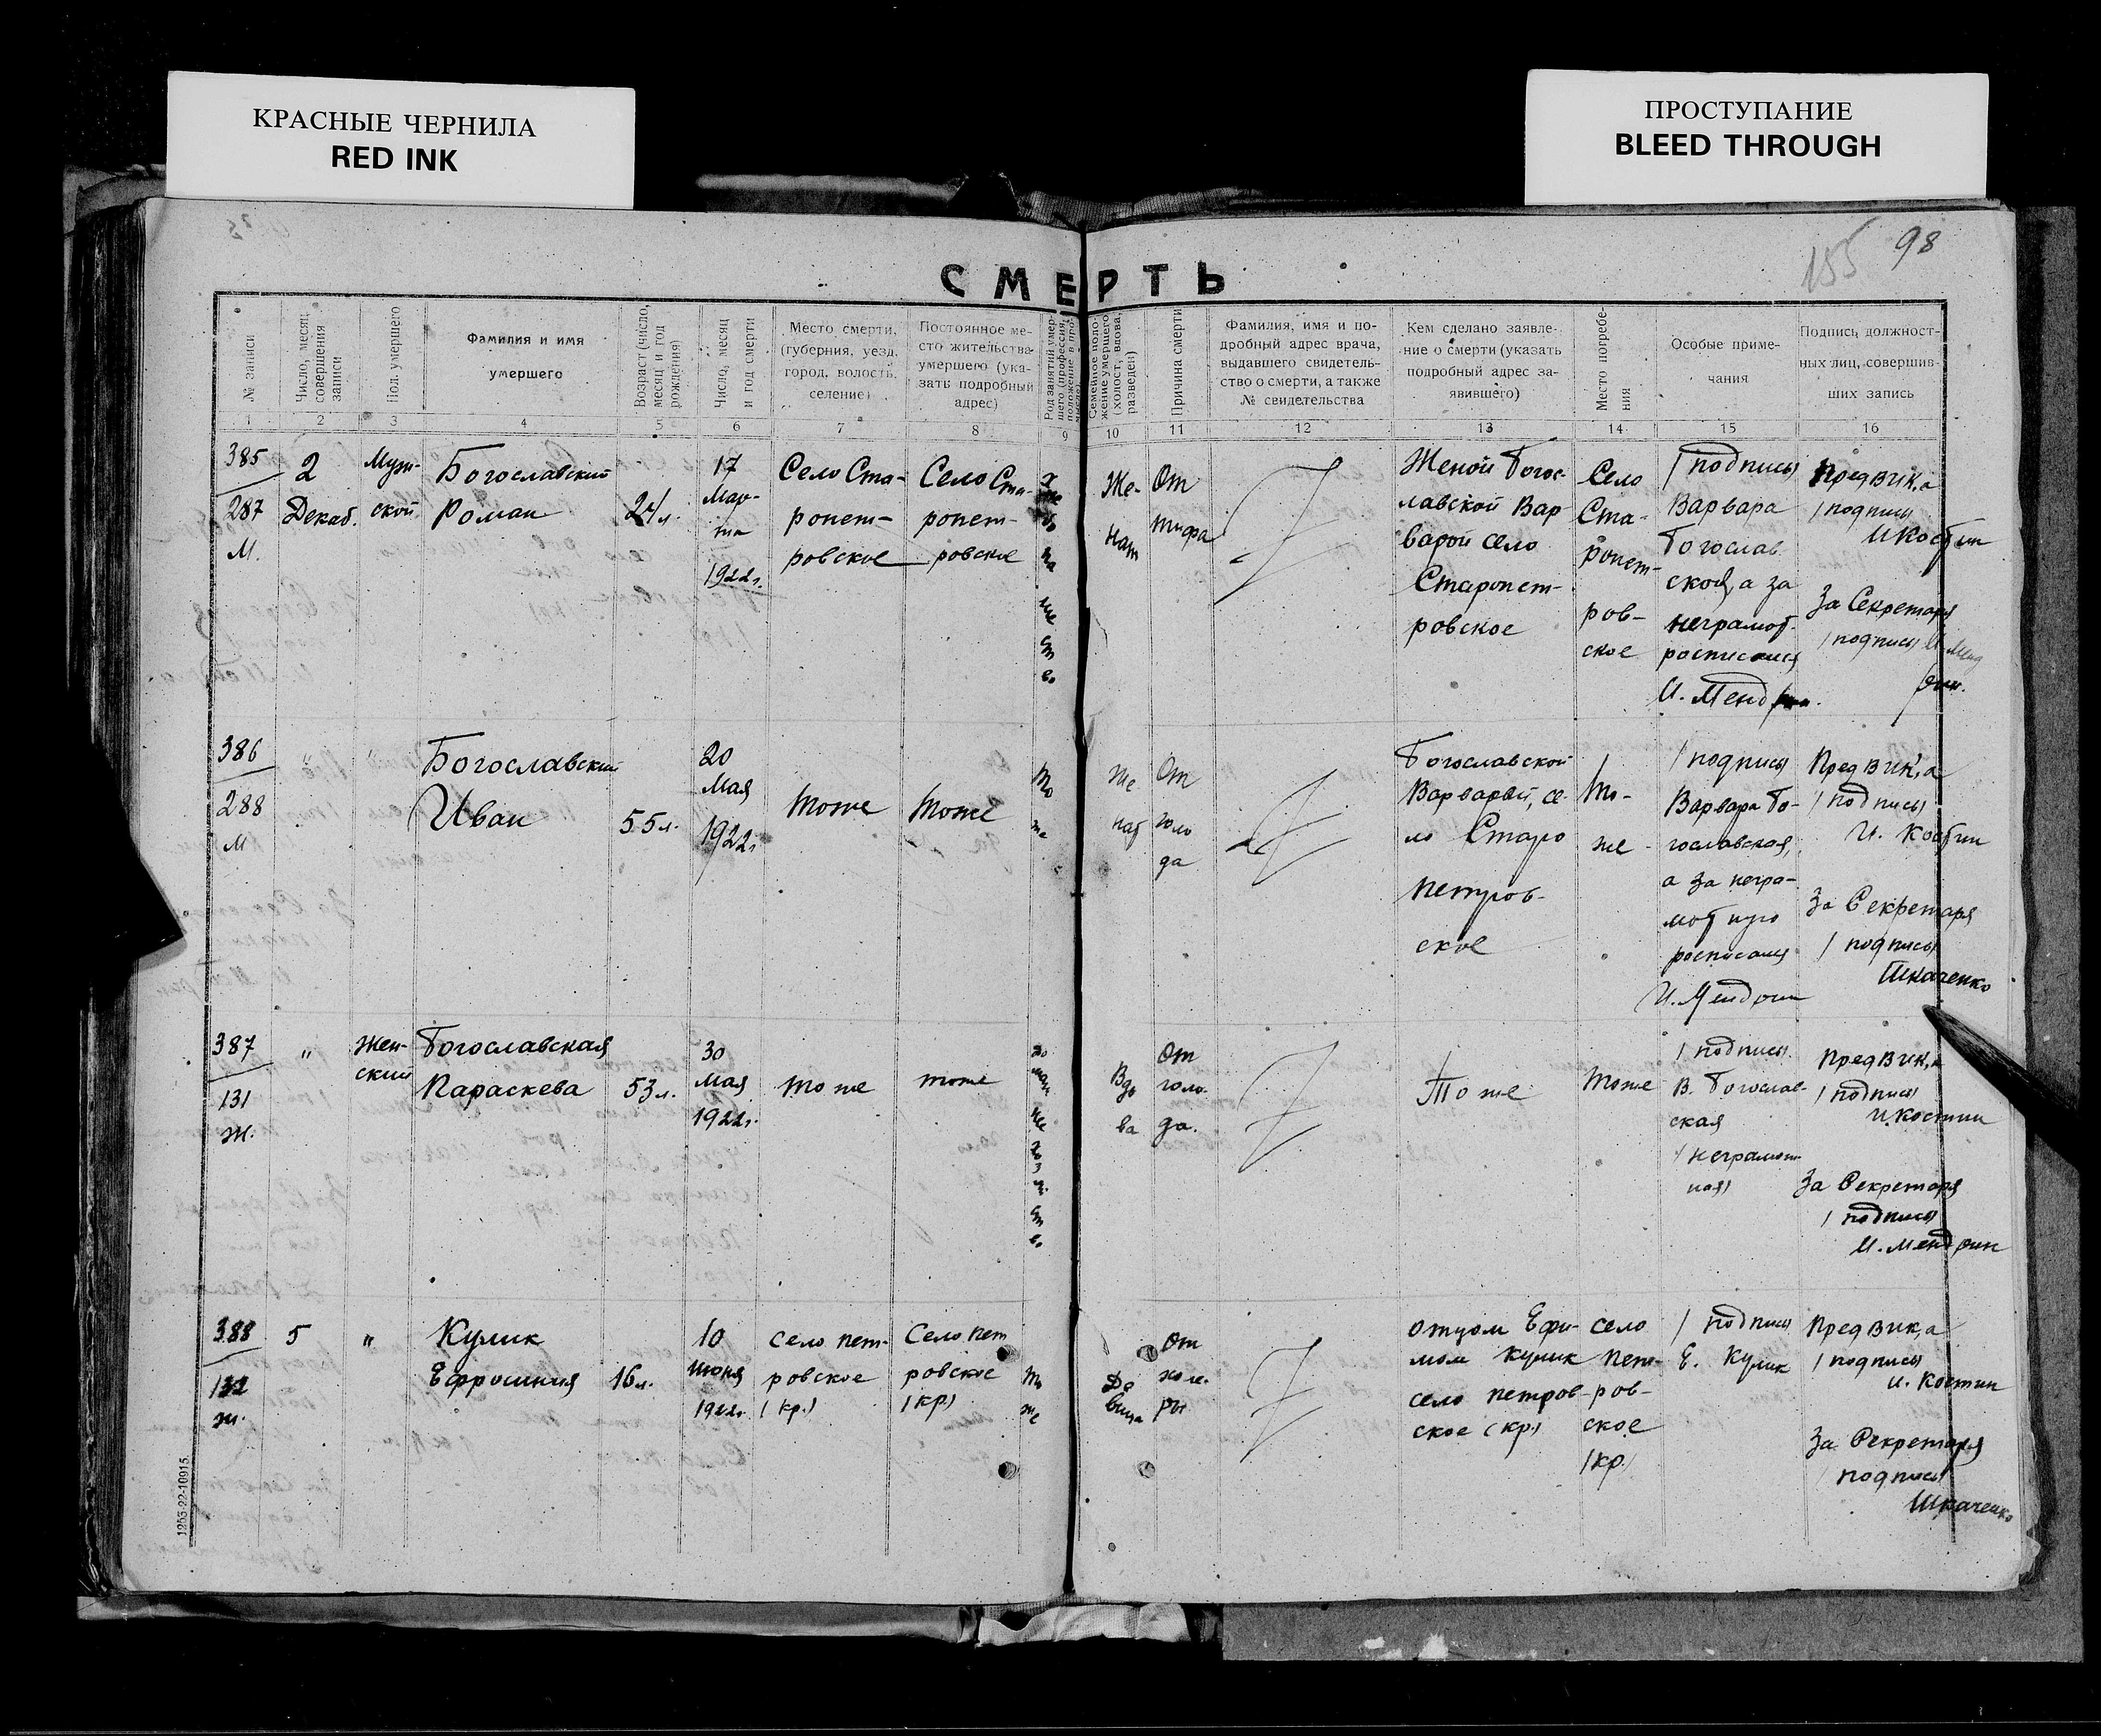 КРАСНЫЕ ЧЕРНИЛА
RED INK
ПРОСТУПАНИЕ
BLEED THROUGH
155
98
СМЕРТЬ
№ записи
Число, месяц совершения записи
Пол умершего
Фамилия и имя
умершего
Возраст (число, месяц и год рождения)
Число, месяц и год смерти
Место смерти,
(губерния, уезд,
город, волость,
селение)
Постоянное ме-
сто жительства
умершего (ука-
зать подробный
адрес)
Род занятий умер-
шего (профессия,
положение в про-
Семейное поло-
жение умершего
(холост, вдова,
разведен)
Причина смерти
Фамилия, имя и по-
дробный адрес врача,
выдавшего свидетель-
ство о смерти, а также
№ свидетельства
Кем сделано заявле-
ние о смерти (указать
подробный адрес за-
явившего)
Место погребе-
ния
Особые приме-
чания
Подпись должност-
ных лиц, совершив-
ших запись
1 2 3 4 5 6 7 8 9 10 11 12 13 14 15 16
385
287
М.
2
Декаб.
Муж-
ской
Богославский
Роман
24 л.
17
Мар-
та
1922 г.
Село Ста-
ропет-
ровское
Село Ста-
ропет-
ровское
Же-
нат
От
тифа
Женой Богос-
лавской Вар
варой село
Старопет-
ровское
Село
Ста-
ропет-
ров-
ское
/подпись/
Варвара
Богослав
ская, а за
неграмот.
росписался
И. Мендрин.
Пред вик,а
/подпись/
И Костин
За Секретаря
/подпись/
386
288
М
"
"
Богославский
Иван
55 л.
20
Мая
1922 г.
тоже
тоже
то
же
же
нат
От
голо
да
Богославской
Варварой, се-
ло Старо
петров-
ское
то-
же
/подпись/
Варвара Бо-
гославская,
а за негра-
мотную
росписался
И. Мендрин
Пред вик,а
/подпись/
И. Костин
За Секретаря
/подпись/
Шкаченко
387
131
Ж.
"
Жен-
ский
Богославская
Параскева
53 л.
30
мая
1922 г.
тоже
тоже
Вдо
ва
От
голо-
да.
Тоже
тоже
/подпись/
В. Богослав-
ская
/неграмот-
ная/
Пред вик,а
/подпись/
И. Костин
За Секретаря
/подпись/
И. Мендрин
388
132
Ж.
5
"
Кулик
Ефросиния
16 л.
10
июня
1922 г.
Село пет-
ровское
(кр.)
Село пет
ровское
(кр)
то
же
Де
вица
От
холе-
ры
отцом Ефи-
мом Кулик
село петров-
ское (кр.)
село
пет-
ров-
ское
/кр./
/подпись/
Е. Кулик
Пред вик,а
/подпись/
И. Костин
За Секретаря
/подпись/
Шкаченко
1253-22-10915.